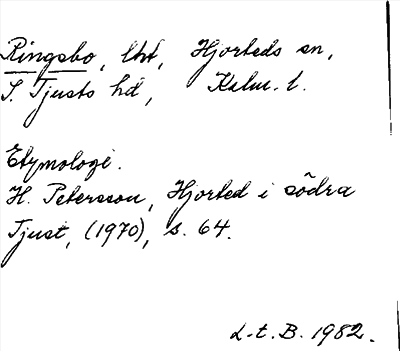 Ringsbo, lht, Hjorteds sn,
S. Tjusts hd, Kalm. l.
Etymologi.
H. Petersson, Hjorted i södra
Tjust, (1970), s. 64.
L-t. B. 1982.